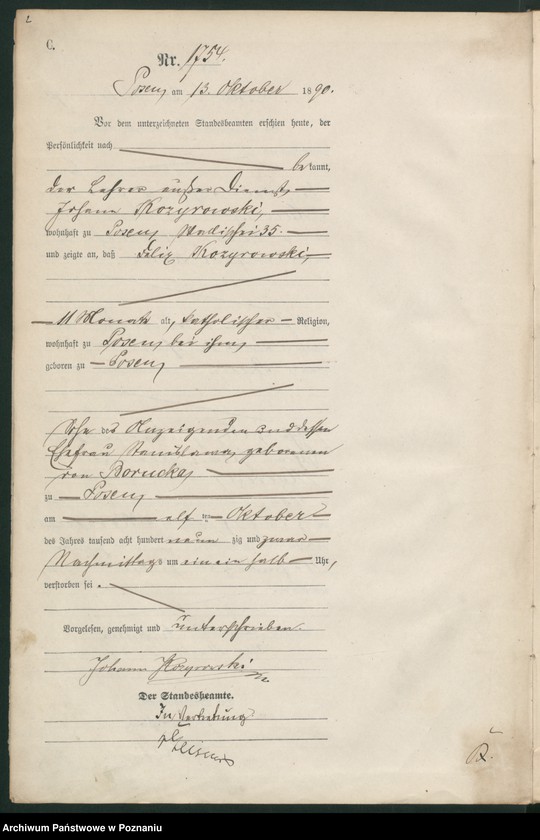 C.
Nr. 1754.
Posen, am 13. Oktober 1890.
Vor dem unterzeichneten Standesbeamten erschien heute, der
Persönlichkeit nach
bekannt,
der Lehrer außer Dienst
Johann Kozyrowski,
wohnhaft zu Posen, 35.
und zeigte an, daß Felix Kozyrowski,
11 Monat alt, katholischer Religion,
wohnhaft zu Posen, bei ihm,
geboren zu Posen,
Sohn des Anzeigenden und dessen
Ehefrau Stanislawa, geborenen
von Borucka,
zu Posen,
am elf ten Oktober
des Jahres tausend acht hundert neunzig und zwar
Nachmittags um ein ein halb Uhr,
verstorben sei.
Vorgelesen, genehmigt und unterschrieben.
Johann Kozyrowski
Der Standesbeamte.
In Vertretung
R.
Archiwum Państwowe w Poznaniu